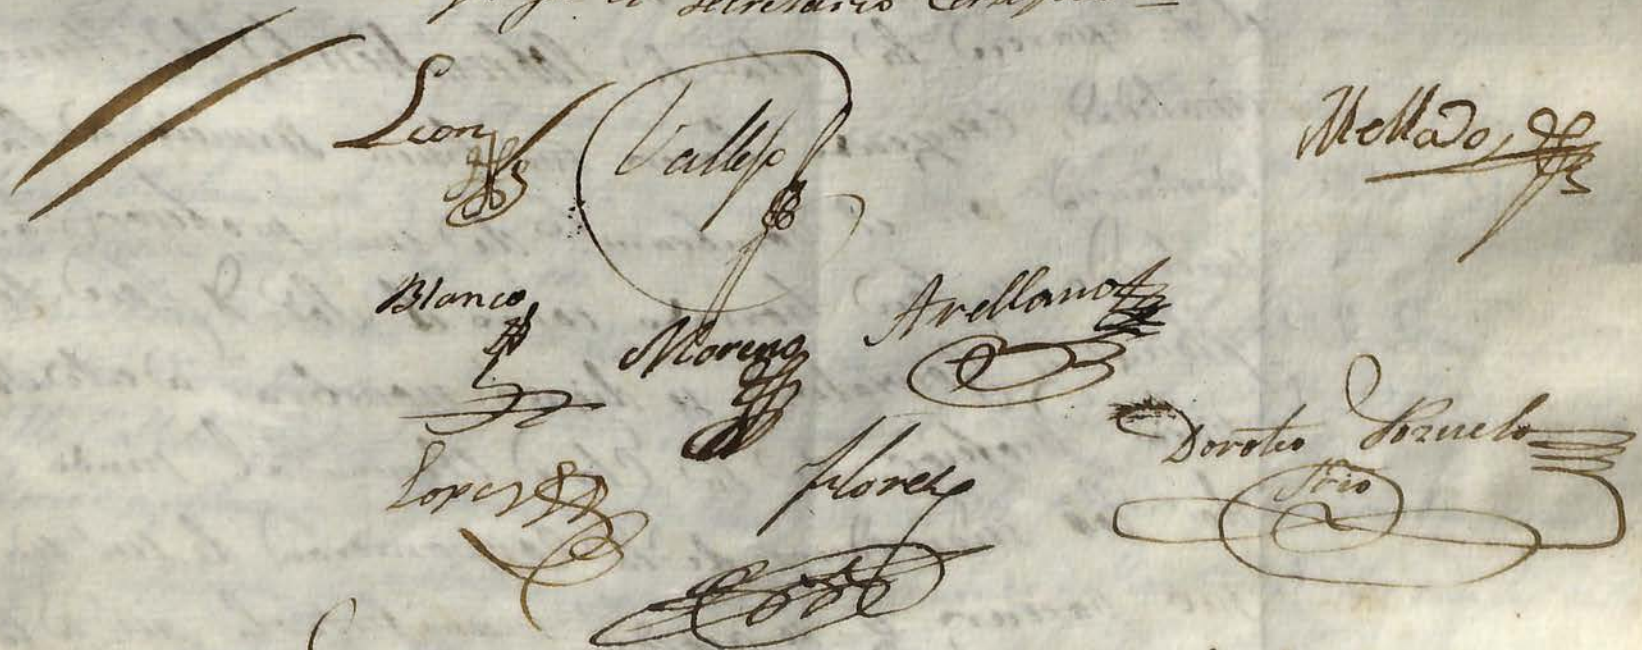 Secretario Certifico
Leon Vallejo Mellado
Blanco Moreno Arellano
Lopez Florez Doroteo Pozuelo
Srio